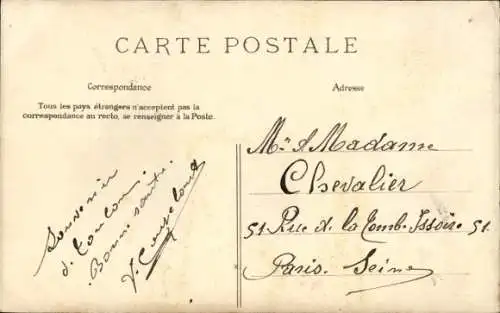 CARTE POSTALE
Correspondance
Adresse
Tous les pays étrangers n'acceptent pas la
correspondance au recto, se renseigner à la Poste.
Souvenir
d.
Bonne santé.
Mr & Madame
Chevalier
51 Rue d. la Tomb. Issoire 51.
Paris. Seine